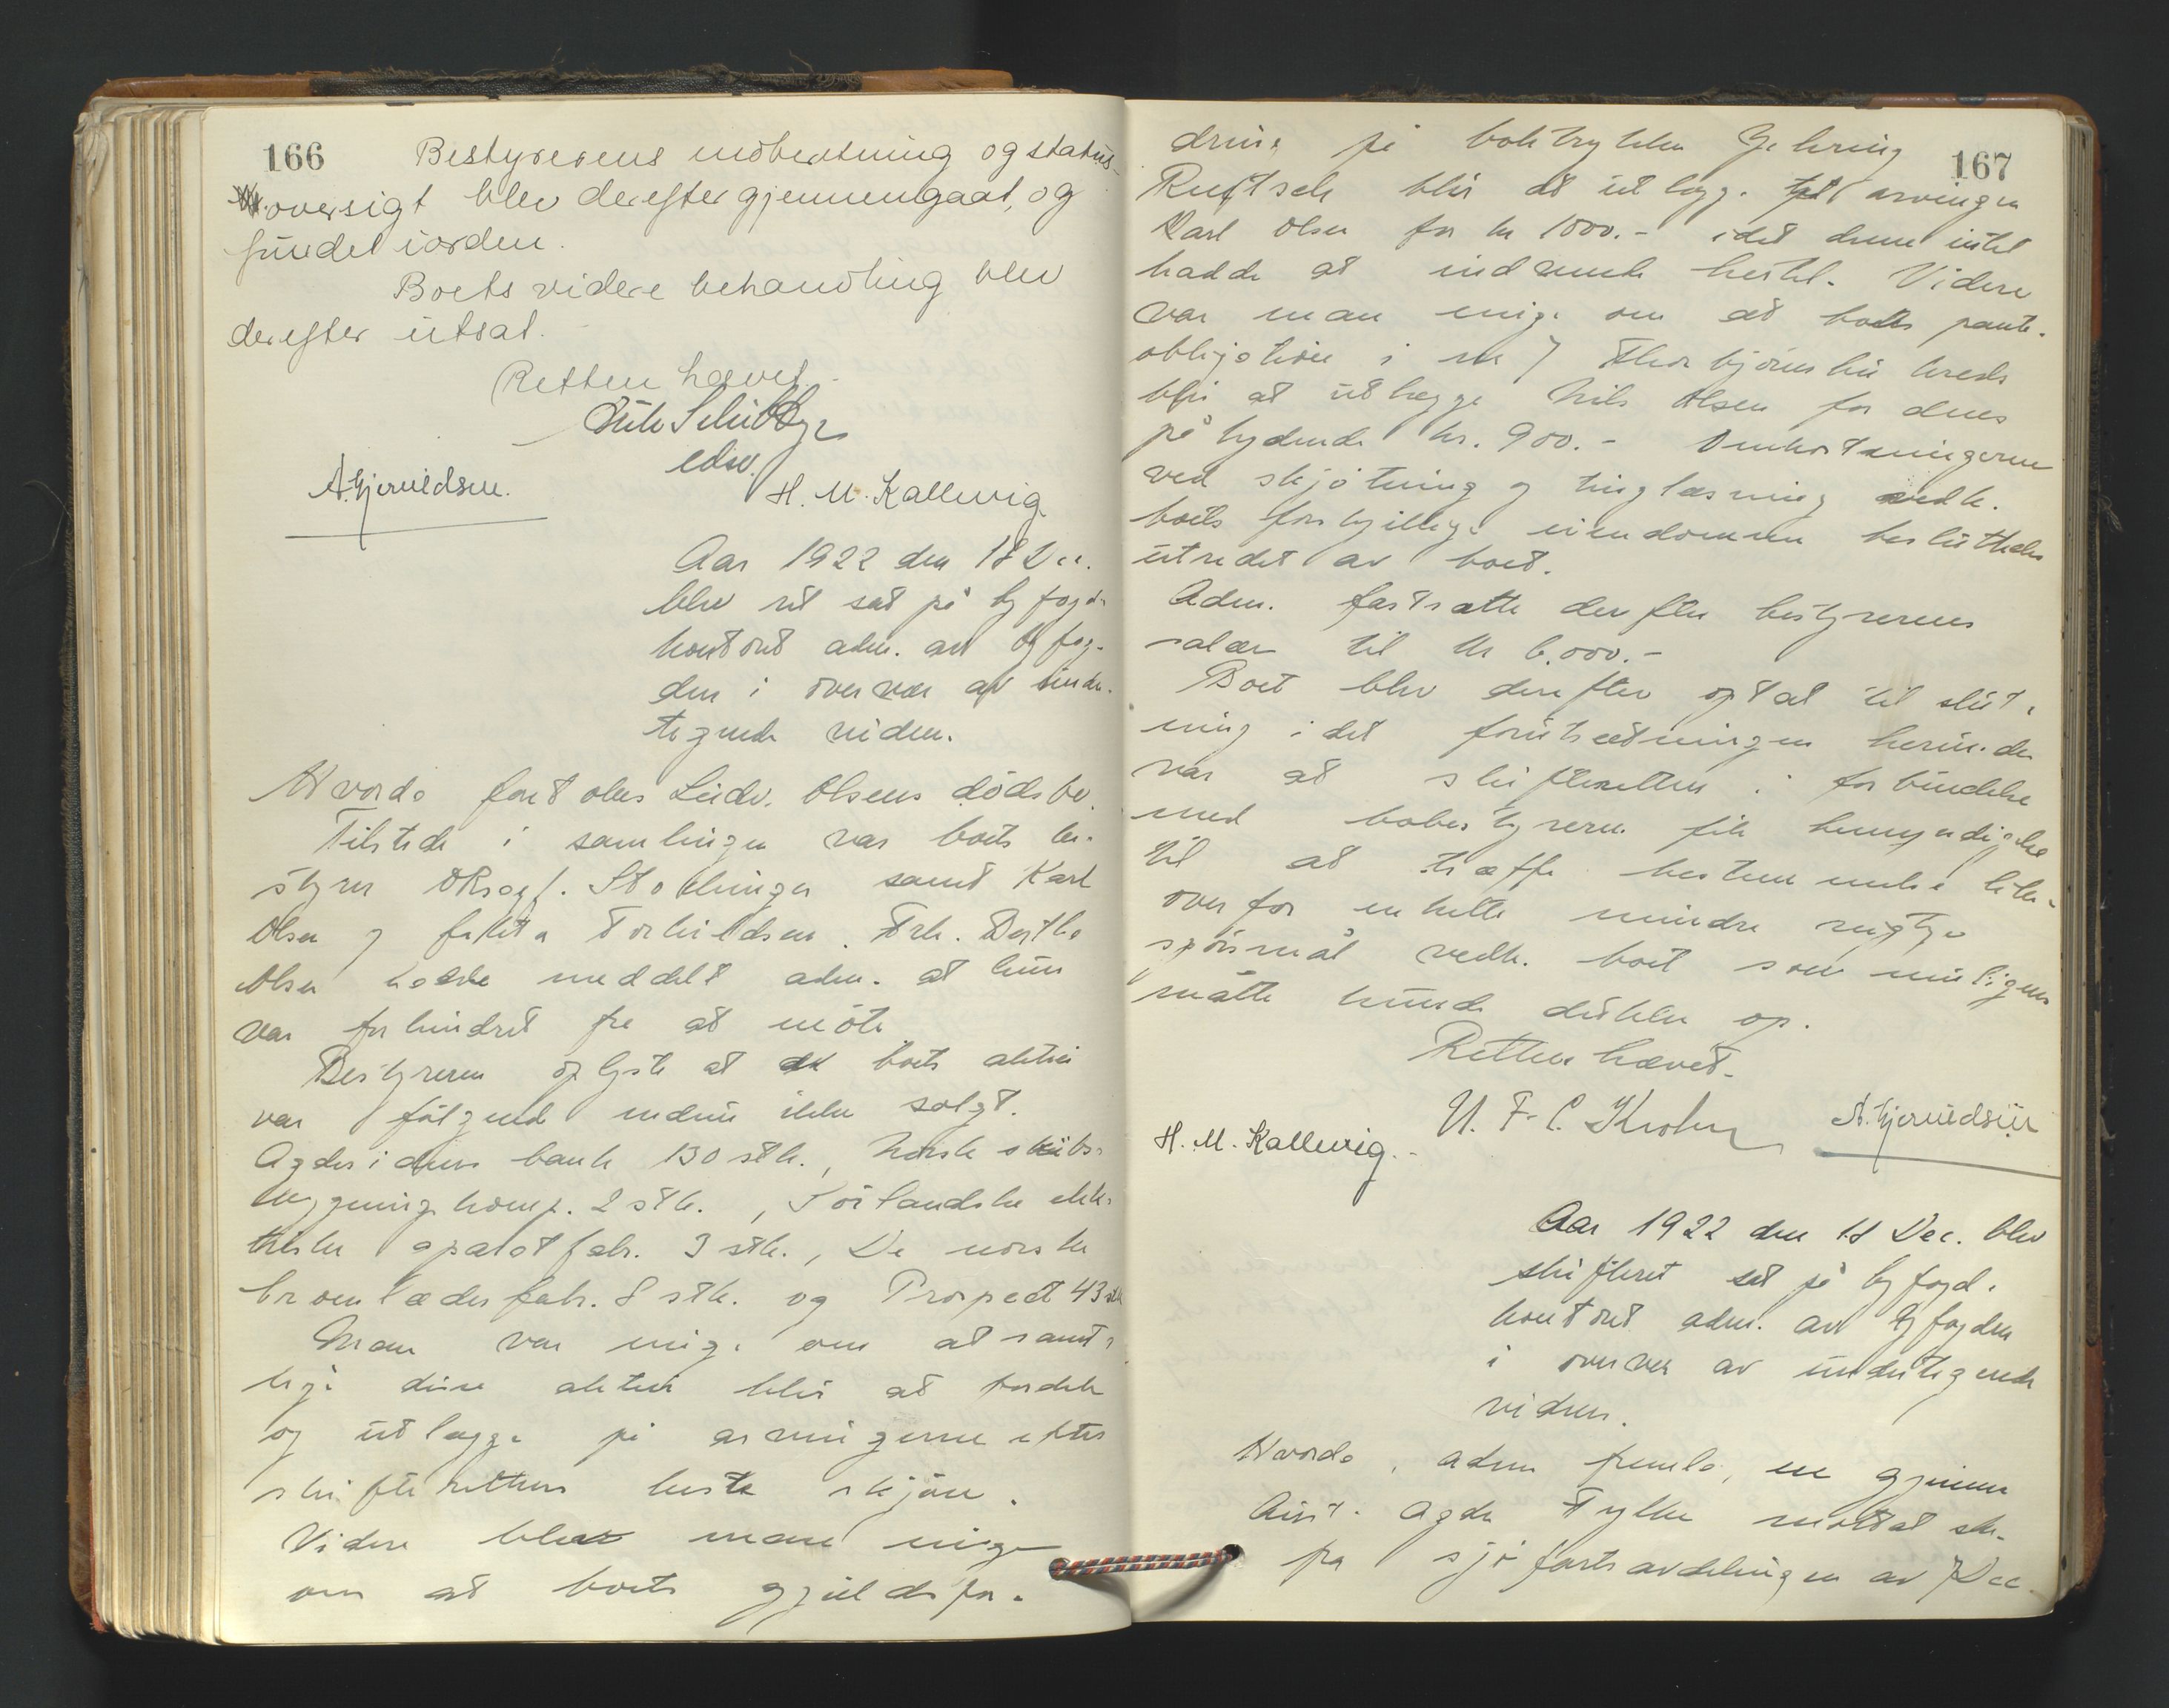 166
Bestyrerens indberetning og status-
oversigt blev derefter gjennemgaat, og
fundet iorden.
Boets videre behandling blev
derefter utsat.
Retten hævet.
edsv.
A. Gjeruldsen.
H. M. Kallevig
Aar 1922 den 18 Dec.
blev ret sat på byfogd-
kontoret adm. av byfog-
den i overvær av under-
tegnede vidner.
Hvorda foretokes Ludv. Olsens dödsbo.
Tilstede i samlingen var boets be-
styrer ORsagf. Stockinger samt Karl
Olsen og Torkildsen. Frk. Dorthe
Olsen hadde meddelt adm. at hun
var forhindret fra at möte
Bestyreren oplyste at av boets aktier
var fölgende endnu ikke solgt.
Agdesidens bank 130 stk., Norsk skibs-
bygningskomp. 2 stk., Sörlandske elek-
triske aparatfabr. 3 stk., De norske
kromlæderfabr. 8 stk. og Prospect 43 stk
Man var enige om at samt-
lige disse aktier blir at fordele
og utlægge på arvingerne efter
skifterettens beste skjön.
Videre blev man enige
om at boets gjældsfor-
167
dring på boktrykker Gehring
blir at utlægge til arvingen
Karl Olsen for kr 1000.- idet denne intet
hadde at indvende hertil. Videre
var man enige om at boets pante-
obligation i nr 7 Thorbjörnsbu kreds
blir at utlægge Nils Olsen for dens
pålydende kr. 900.- Omkostningerne
ved skjötning og tinglæsning vedk.
boets forskjellige eiendommer besluttedes
utredet av boet.
Adm. fastsatte derefter bestyrerens
salær til kr 6.000.-
Boet blev derefter optat til slut-
ning idet forutsætningen herunder
var at skifteretten i forbindelse
med bobestyreren fik bemyndigelse
til at træffe bestemmelse like-
overfor enkelte mindre vigtige
spörsmål vedk. boet som muligens
måtte kunde dukke op.
Retten hævet.
H. M. Kallevig.
U. F. C. Krohn
A. Gjeruldsen
Aar 1922 den 18 Dec. blev
skifteret sat på byfogd-
kontoret adm. av byfogden
i overvær av undertegnede
vidner.
Hvorda, adm fremla, en gjennem
Aust-Agder Fylke mottat sk.
fra sjöfartsavdelingen av 7 Dec.